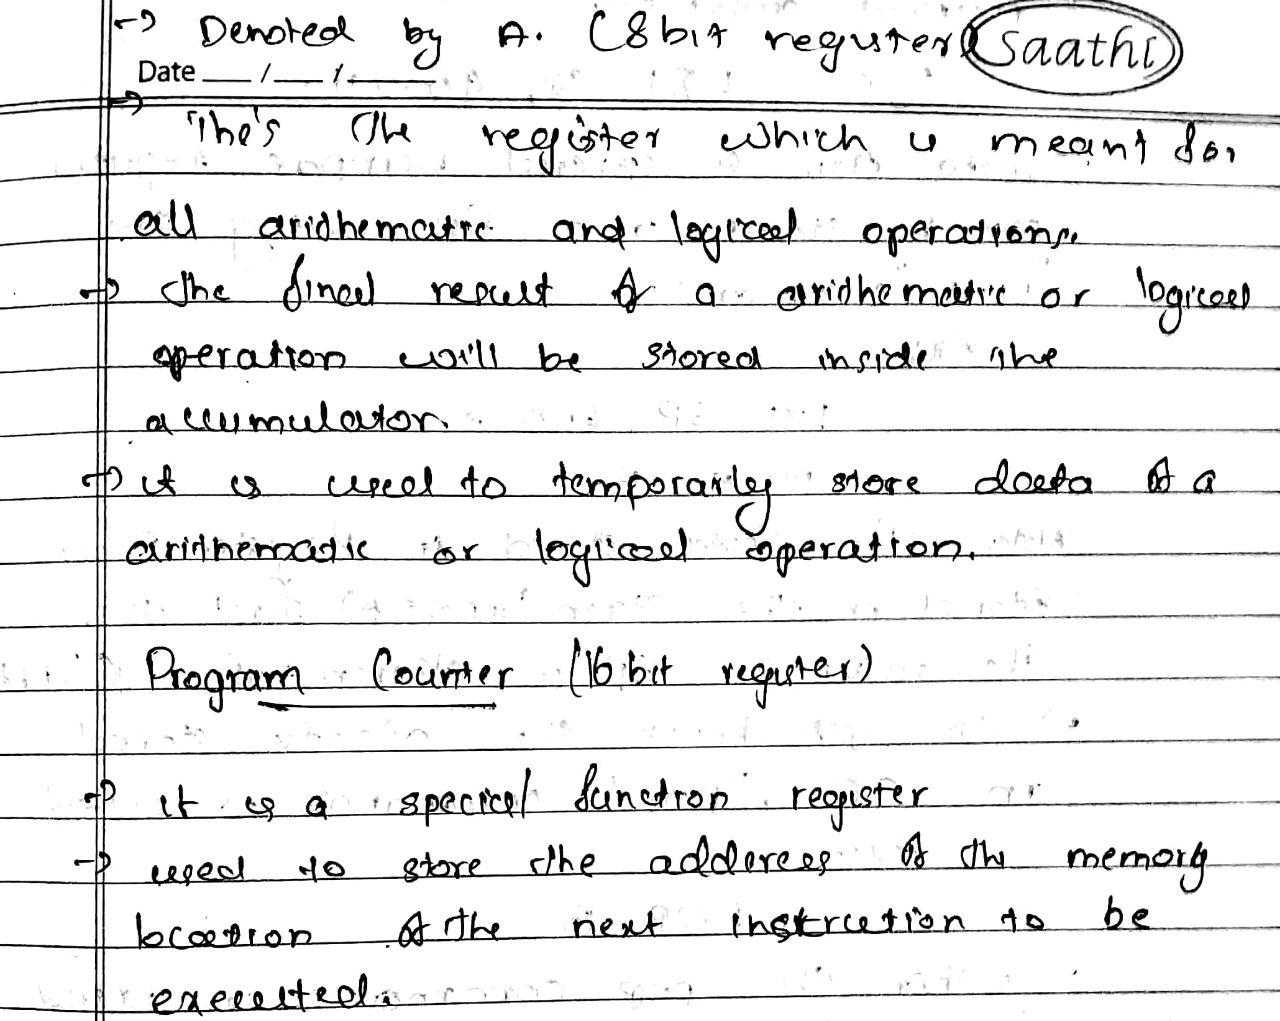 → Denoted by A. (8 bit register) Saathi
Date __/__/____
→ This The register which is meant for
all aridhematic and logical operations.
→ The final result of a aridhematic or logical
operation will be stored inside the
accumulator.
→ it is used to temporarily store data of a
aridhematic or logical operation.
Program Counter (16 bit register)
→ it is a special function register
→ used to store the adderess of the memory
location of the next instruction to be
executed.